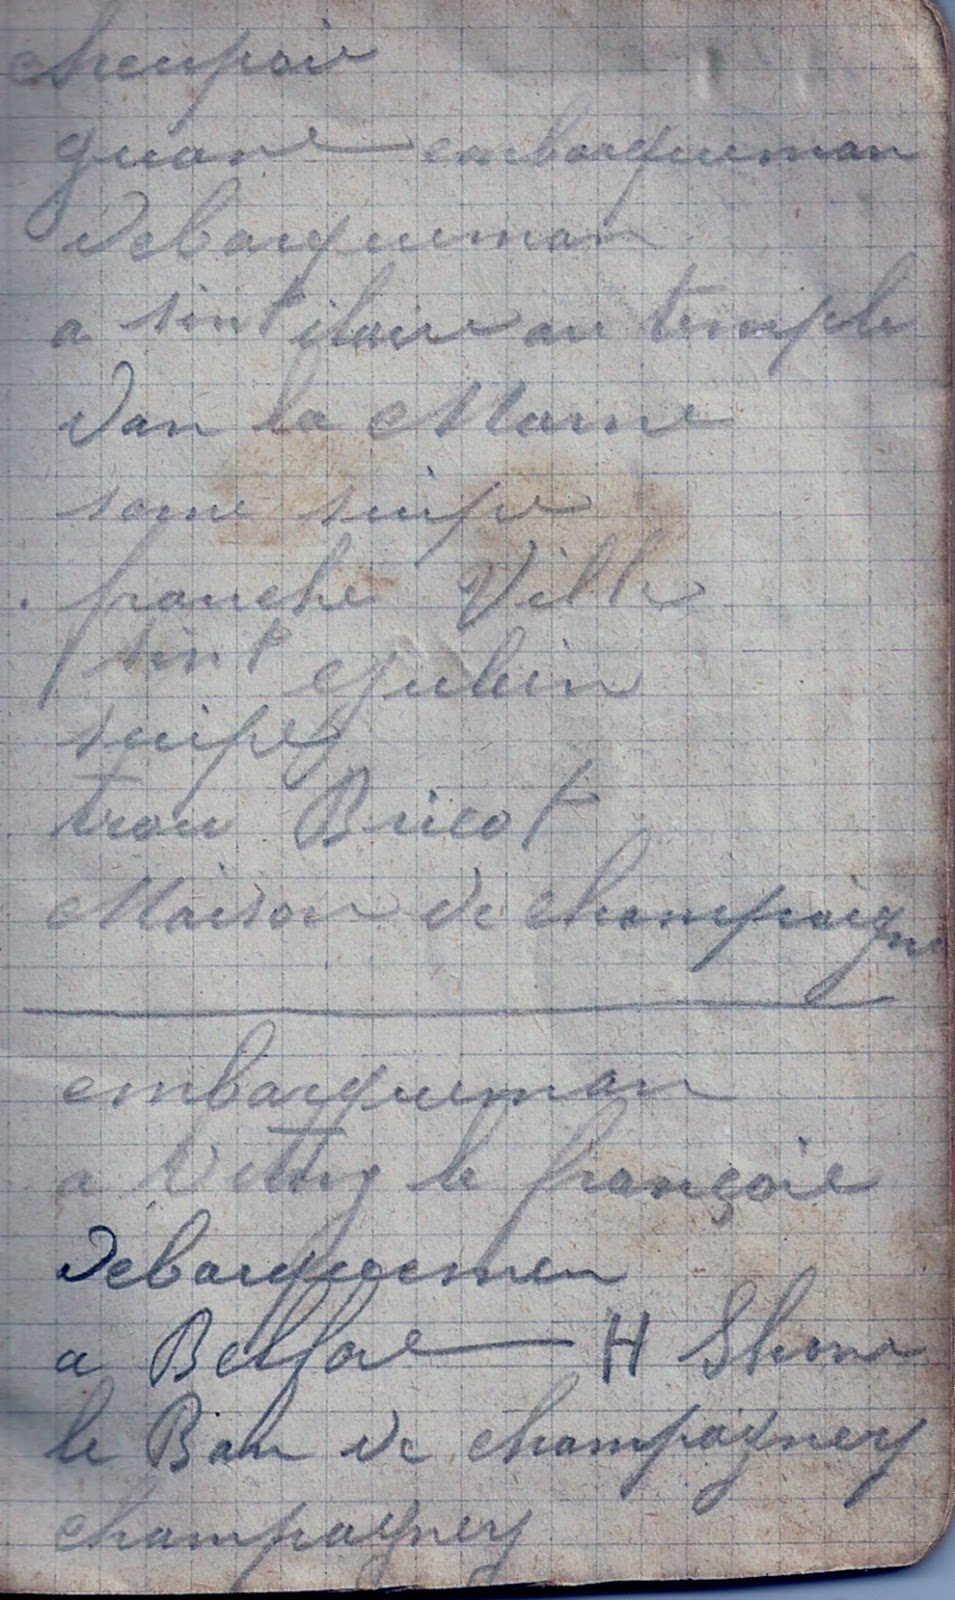 cheupoir
guane embarqueman
Debarqueman
a sint ilaire au temple
Dan la Marne
some suipe
franche Ville
sint Julien
suipes
trou Bricot
Maison de champaigne
embarqueman
a Vetry le françoie
Debarquemen
a Belfore H Shone
le Ban de champagney
champagney